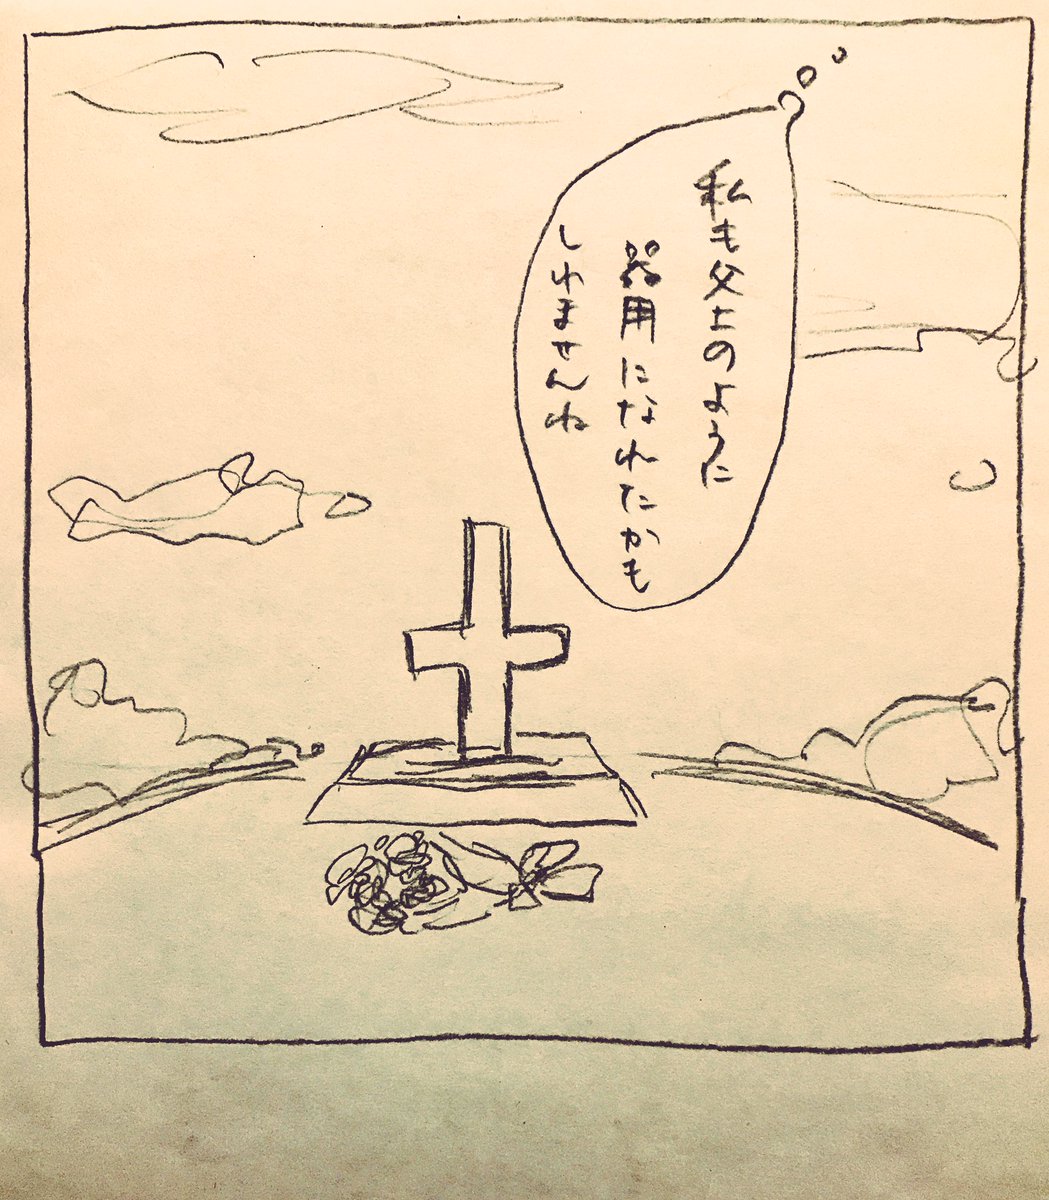 私も父上のように
器用になれたかも
しれませんね